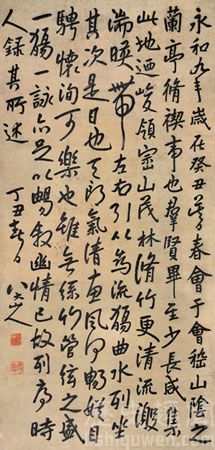 永和九年歲在癸丑暮春會于會稽山陰之
蘭亭脩禊事也羣賢畢至少長咸集
此地迺峻領崇山茂林脩竹更清流激
湍暎帶左右引以為流觴曲水列坐
其次是日也天朗氣清惠風和暢娱目
騁懷洵可樂也雖無絲竹管弦之盛
一觴一詠亦足以暢敘幽情已故列序時
人錄其所述 丁丑春日 八大山人